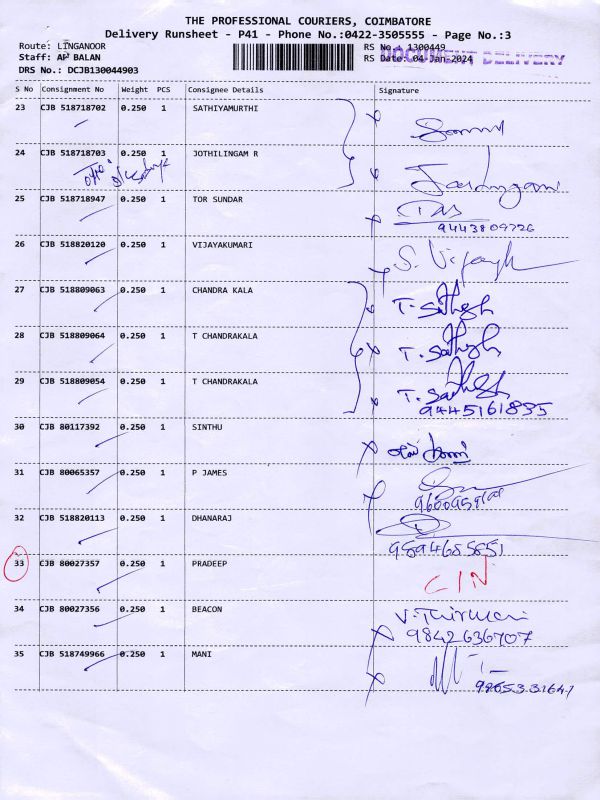 THE PROFESSIONAL COURIERS, COIMBATORE
Delivery Runsheet - P41 - Phone No.:0422-3505555 - Page No.:3
Route: LINGANOOR RS No.: 1300449
Staff: AP BALAN RS Date: 04-Jan-2024 DOCUMENT DELIVERY
DRS No.: DCJB130044903
S No Consignment No Weight PCS Consignee Details Signature
23 CJB 518718702 0.250 1 SATHIYAMURTHI
24 CJB 518718703 0.250 1 JOTHILINGAM R
25 CJB 518718947 0.250 1 TOR SUNDAR
9443809726
26 CJB 518820120 0.250 1 VIJAYAKUMARI
27 CJB 518809063 0.250 1 CHANDRA KALA T. Sathish
28 CJB 518809064 0.250 1 T CHANDRAKALA T. Sathish
29 CJB 518809054 0.250 1 T CHANDRAKALA T. Sathish
9445161835
30 CJB 80117392 0.250 1 SINTHU
31 CJB 80065357 0.250 1 P JAMES
32 CJB 518820113 0.250 1 DHANARAJ
9894685851
33 CJB 80027357 0.250 1 PRADEEP C/N
34 CJB 80027356 0.250 1 BEACON
9842636707
35 CJB 518749966 0.250 1 MANI